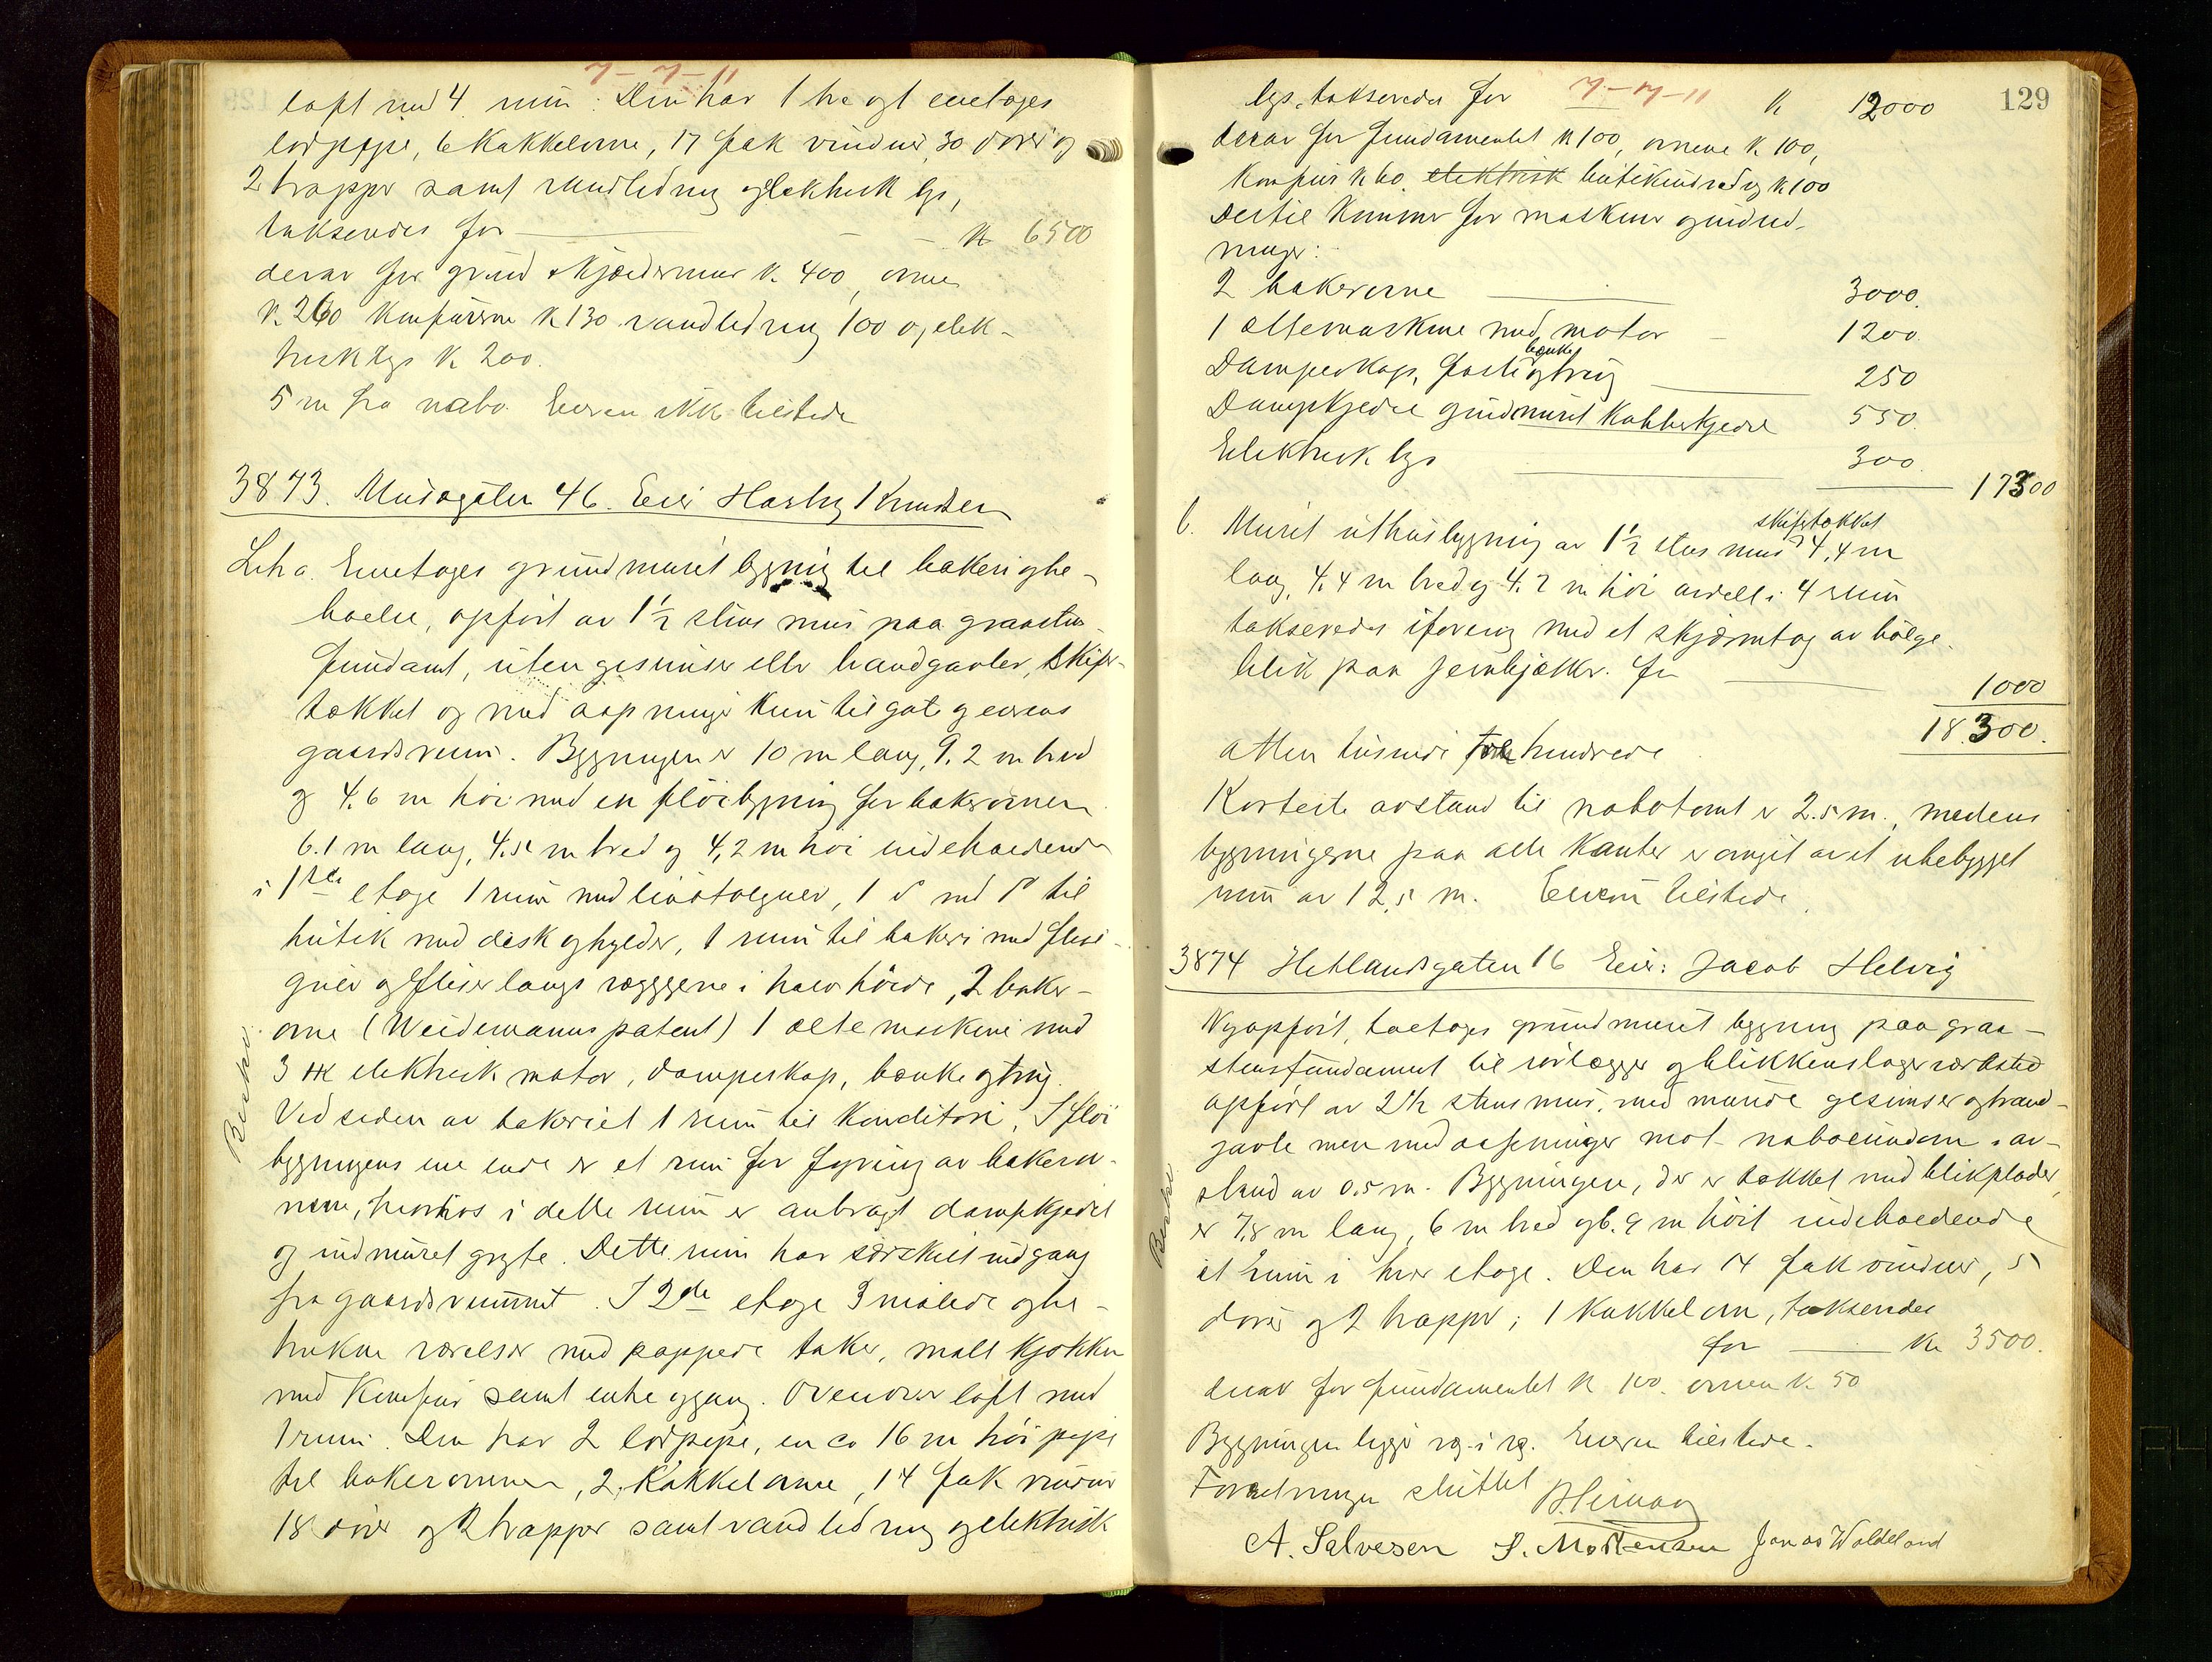 7-7-11
loft med 4 rum. Den har 1 tre og 1 enetages
lodpipe, 6 kakkelovne, 17 fak vinduer, 30 dører og
2 trapper samt vandledning og elektrisk lys,
takseredes for — k 6500
derav for grund & kjældermur k. 400, ovne
k. 260 komfurerne k 130 vandledning 100 og elek-
trisk lys k 200.
5 m fra nabo. Eieren ikke tilstede
3873. Musegaten 46. Eier Knudsen
Litr a. Enetages grundmuret bygning til bakeri og be-
boelse, opført av 1½ stens mur paa graastens
fundamt, uten gesimser eller brandgavler, skifer-
tækket og med aapninger kun til gate og eierens
gaardsrum. Bygningen er 10 m lang, 9.2 m bred
og 4.6 m høi med en fløibygning for bakerovnen
6.1 m lang, 4.5 m bred og 4,2 m høi indeholdende
i 1ste etage 1 rum med , 1 do med do til
butik med disk og hylder, 1 rum til bakeri med flise-
gulv og fliser langs væggene i halv høide, 2 baker-
ovne (Weidemanns patent) 1 æltemaskine med
3 HK elektrisk motor, dampskap, bænke og trug.
Ved siden av bakeriet 1 rum til konditori. I fløi
bygningens ene ende er et rum for fyring av bakerov-
nene, hvorhos i dette rum er anbragt dampkjedel
og indmuret gryte. Dette rum har særskilt indgang
fra gaardsrummet. I 2den etage 3 malede og be-
trukne værelser med pappede taker, malt kjøkken
med komfur samt entre og gang. Ovenover loft med
1 rum. Den har 2 lodpipe, en ca 16 m høi pipe
til bakerovnen, 2 kakkelovne, 14 fak vinduer
18 dører og 2 trapper samt vandledning og elektrisk
129
7-7-11
lys, takseredes for k 12000
derav for fundamentet k 100, ovnene k 100,
komfur k 60. elektrisk butikindredng k 100
Dertil kommer for maskiner og indred-
ninger:
2 bakerovne — 3000.
1 æltemaskine med motor — 1200.
Dampskap, bænke og trug — 250
Dampkjedel og indmuret kobberkjedel 550.
Elektrisk lys — 300.
17300
b. Muret uthusbygning av 1½ stens mur skifertækket 4,4 m
lang, 4.4 m bred og 4.2 m høi avdelt i 4 rum
takseredes iforening med et skjærmtag av bølge-
blik paa jernbjælker. for — 1000
18.300.
atten tusinde tre hundrede
Korteste avstand til nabotomt er 2.5 m., medens
bygningerne paa alle kanter er omgit av et ubebygget
rum av 12,5 m. Eieren tilstede.
3874 Hetlandsgaten 16 Eier: Jacob Helvig
Nyopført, toetages grundmuret bygning paa graa-
stensfundament til rørlægger og blikkenslagerværksted
opført av 2½ stens mur, med murede gesimser og brand-
gavle men med aapninger mot naboeiendom i av-
stand av 0.5 m. Bygningen, der er tækket med blikplader,
er 7,8 m lang, 6 m bred og 6.9 m høit indeholdende
et rum i hver etage. Den har 14 fak vinduer, 5
dører og 2 trapper; 1 kakkelovn, takseredes
for — kr 3500.
derav for fundamentet k 100. ovnen k 50
Bygningen ligger væg i væg. Eieren tilstede.
Forretningen sluttet
A. Salvesen S. Mortensen Jonas Waldeland